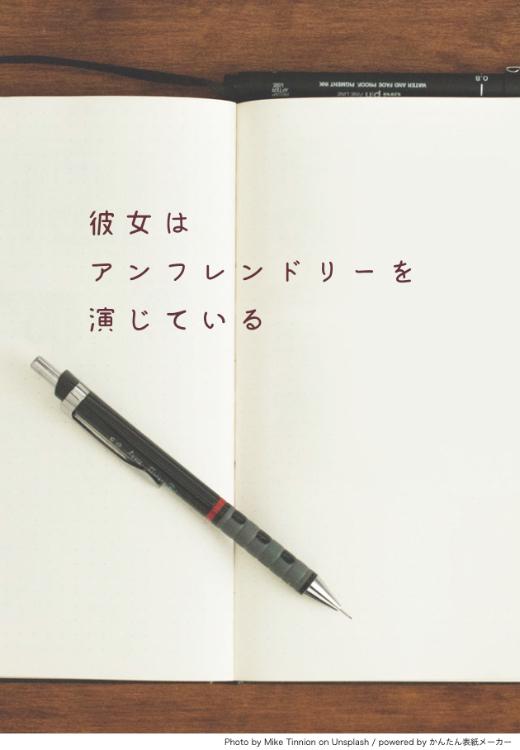 WATER AND FADE PROOF, PIGMENT INK
0.8
彼女は
アンフレンドリーを
演じている
Photo by Mike Tinnion on Unsplash / powered by かんたん表紙メーカー